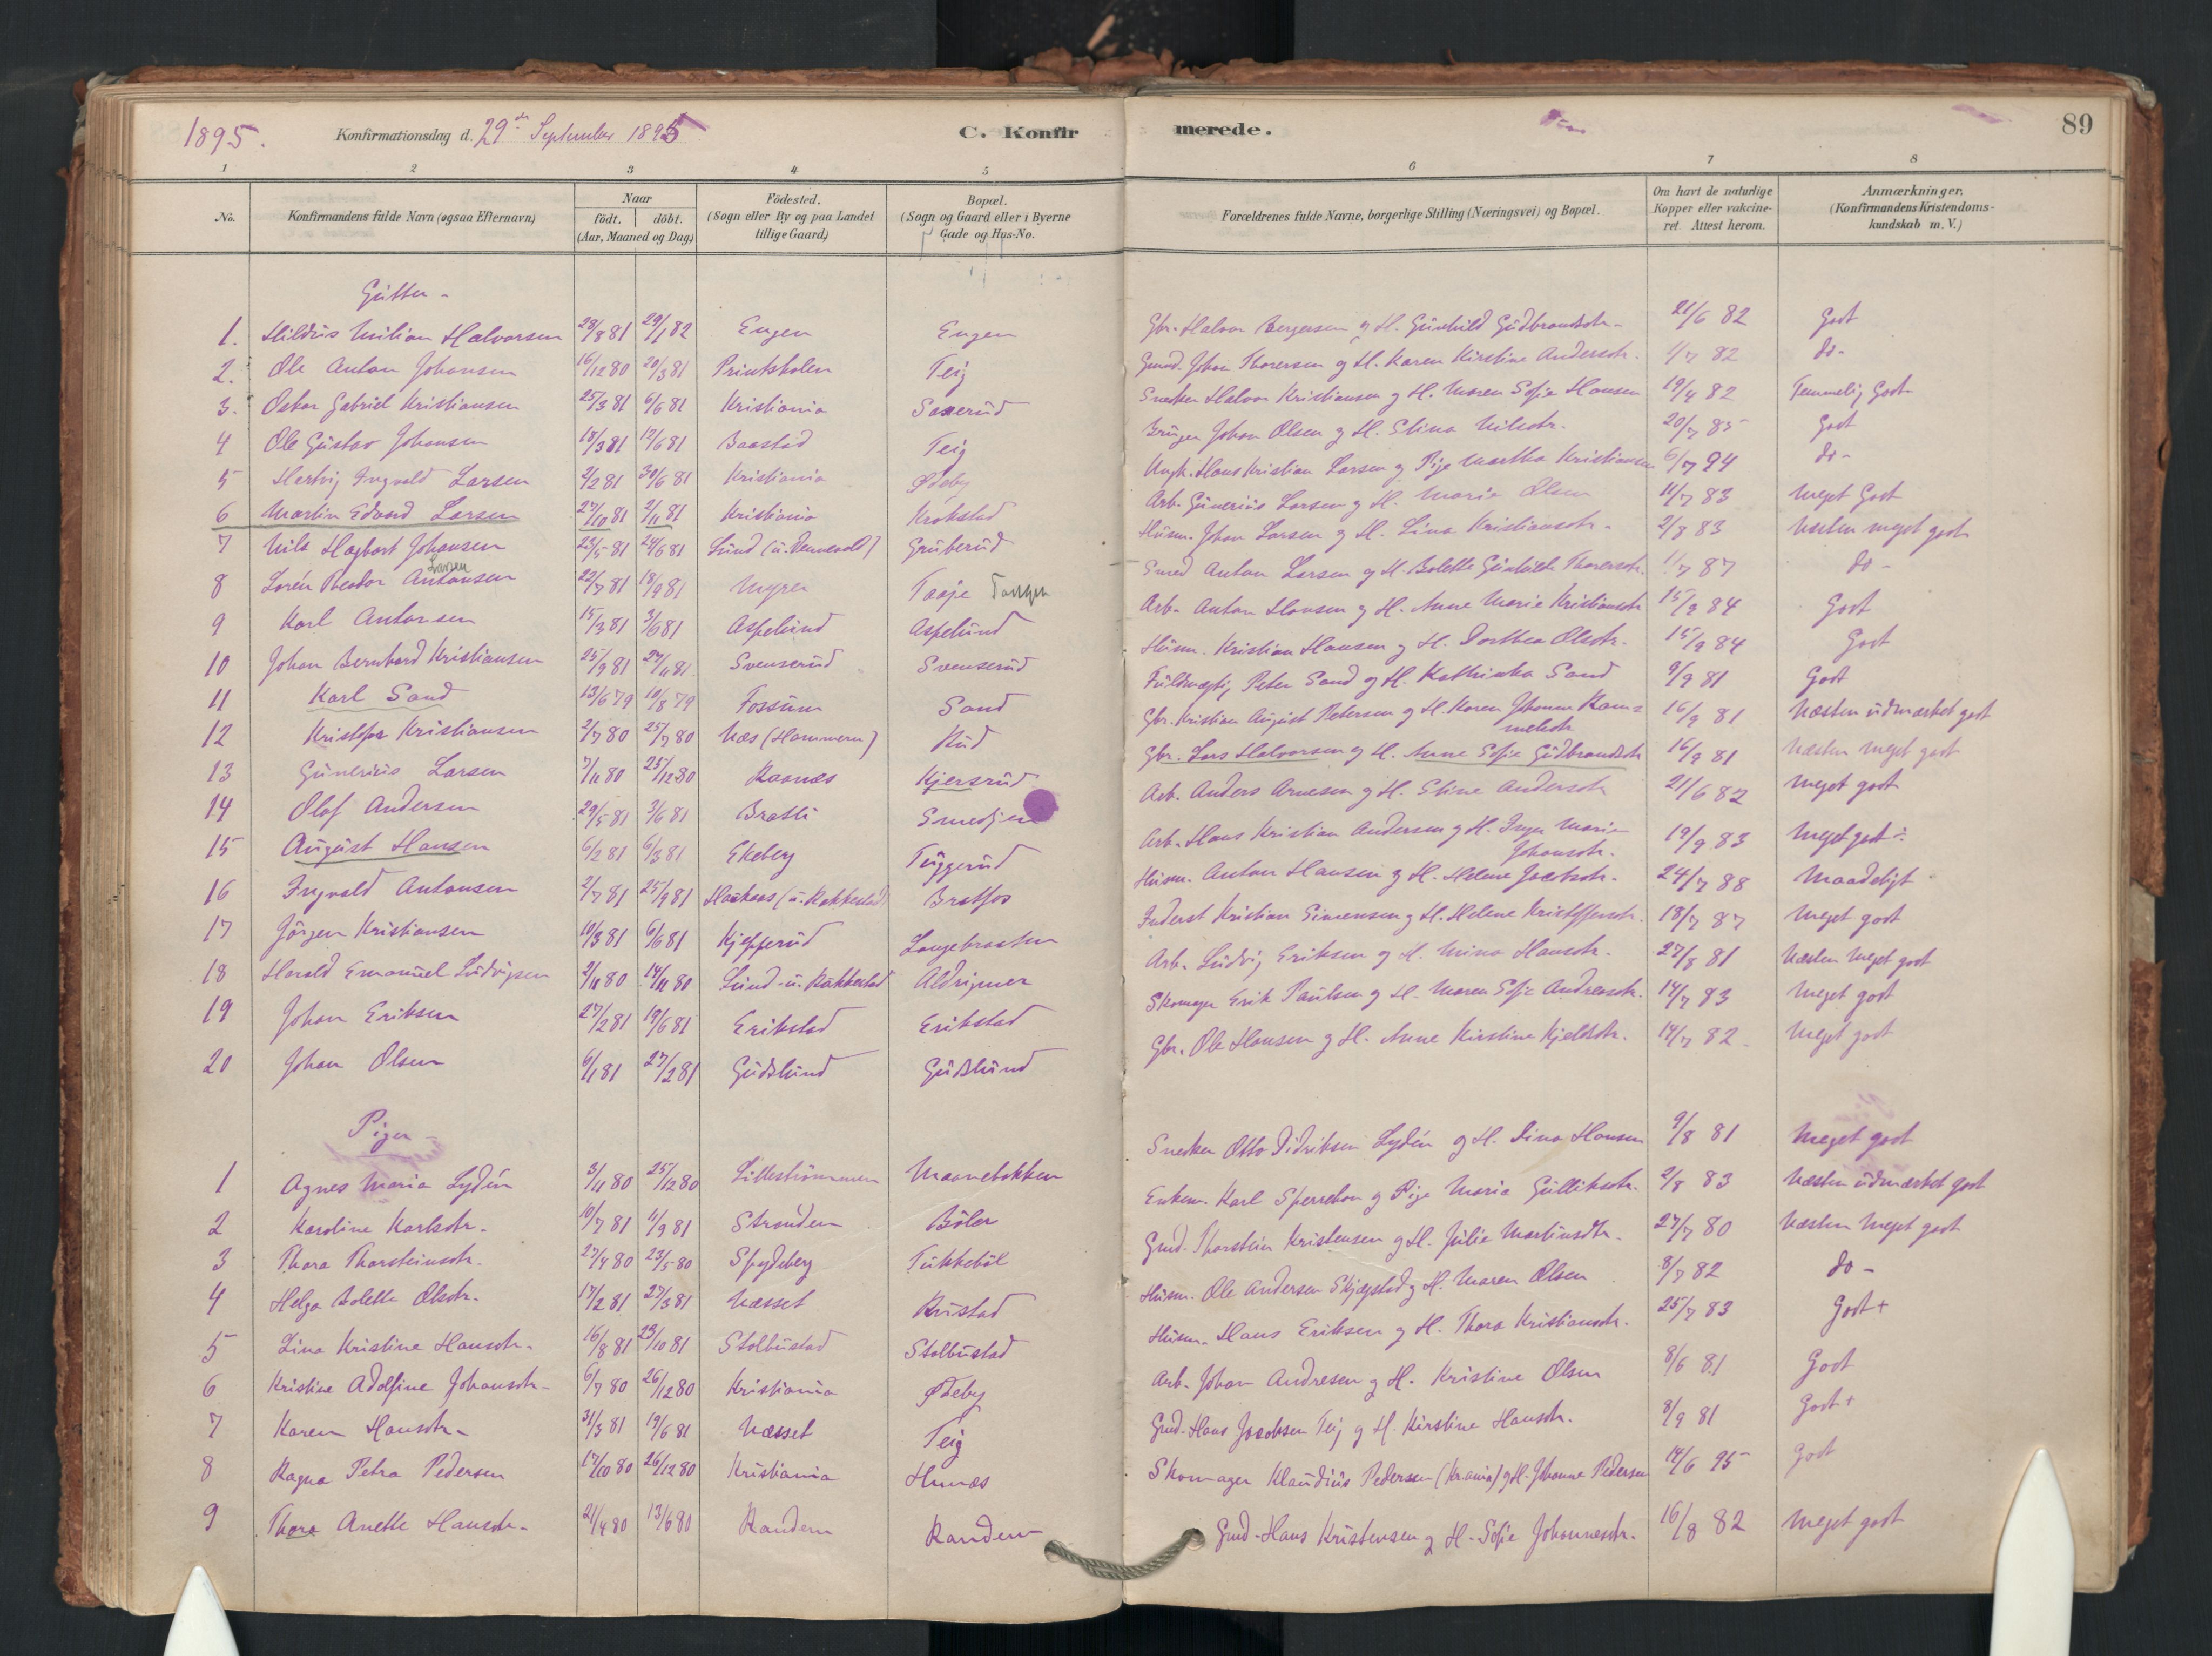 1895. Konfirmationsdag d. 29de September 1895 C. Konfirmerede. 89
1 2 3 4 5 6 7 8
No. Konfirmandens fulde Navn (ogsaa Efternavn) Naar født. døbt. (Aar, Maaned og Dag) Fødested. (Sogn eller By og paa Landet tillige Gaard) Bopæl. (Sogn og Gaard eller i Byerne Gade og Hus-No. Forældrenes fulde Navne, borgerlige Stilling (Næringsvei) og Bopæl. Om havt de naturlige Kopper eller vakcineret. Attest herom. Anmærkninger. (Konfirmandens Kristendomskundskab m. V.)
Gutter -
1. Hildius Milian Halvorsen 28/8 81 29/1 82 Engen Engen Gbr. Halvor Bergersen og H. Gunhild Gudbrandsdtr. 21/6 82 Godt
2. Ole Anton Johansen 16/12 80 20/3 81 Teig Johan Thorersen og H. Karen Kirstine Andersdtr. 1/7 82 do-
3. Oskar Gabriel Kristiansen 25/3 81 6/6 81 Kristiania Saxerud Snedker Halvor Kristiansen og H. Maren Sofie Hansen 19/4 82 Temmelig Godt
4 Ole Gustav Johansen 18/3 81 12/6 81 Baastad Teig Bruger Johan Olsen og H. Elina Nilsdtr. 20/7 85 Godt
5 Hertvig Ingvald Larsen 2/2 81 30/6 81 Kristiania Ødeby Ungk. Hans Kristian Larsen og Pige Martha Kristiansen 6/7 94 do-
6 Martin Edvard Larsen 27/10 81 2/11 81 Kristiania Krokstad Arb. Gunerius Larsen og H. Marie Olsen 11/7 83 Meget Godt
7 Nils Hagbart Johansen 23/5 81 24/6 81 Lund (u. Dennevold) Gruberud Husm. Johan Larsen og H. Lina Kristiansdtr. 2/8 83 Næsten meget godt
8 Lorén Theodor Antonsen Larsen 22/7 81 18/9 81 Myrer Taaje Smed Anton Larsen og H. Bolette Gunhilde Thorersdtr. 1/7 87 do-
9 Karl Antonsen 15/3 81 3/6 81 Aspelund Aspelund Arb. Anton Hansen og H. Anne Marie Kristiansdtr 15/9 84 Godt
10 Johan Bernhard Kristiansen 25/9 81 27/11 81 Svenserud Svenserud Husm. Kristian Hansen og H. Dorthea Olsdtr. 15/9 84 Godt
11 Karl Sand 13/6 79 10/8 79 Fossum Sand Fuldmægtig Peter Sand og H. Kathinka Sand 9/9 81 Godt
12 Kristofer Kristiansen 2/7 80 25/7 80 Næs (Hammeren) Rud Gbr. Kristian August Petersen og H. Karen Johanne Rasmelsdtr 16/9 81 Næsten udmærket godt
13 Gunerius Larsen 7/11 80 25/12 80 Raanæs Kjersrud Gbr. Lars Halvorsen og H. Anne Sofie Gudbrandsdtr 16/9 81 Næsten meget godt
14 Olaf Andersen 29/5 81 3/6 81 Bratli Smedjen Arb. Anders Arnesen og H. Eline Andersdtr 21/6 82 Meget godt
15 August Hansen 6/2 81 6/3 81 Ekeberg Tuggerud Arb. Hans Kristian Andersen og H. Inger Marie Johansdtr. 19/9 83 Meget godt ÷
16 Ingvald Antonsen 2/7 81 25/9 81 Haukaas (u. Rakkestad) Bratfos Husm. Anton Hansen og H. Helene Jacobsdtr. 24/7 88 Maadeligt
17 Jörgen Kristiansen 10/3 81 6/6 81 Kjepperud Langebraaten Inderst Kristian Simensen og H. Helene Kristoffersdtr. 18/7 87 Meget godt
18 Harald Emanuel Ludvigsen 2/11 80 14/11 80 Lund - u. Rakkestad Aldrimer Arb. Ludvig Eriksen og H. Mina Hansdtr. 27/8 81 Næsten Meget godt
19 Johan Eriksen 27/2 81 19/6 81 Erikstad Erikstad Skomager Erik Paulsen og H. Maren Sofie Andreasdtr. 14/7 83 Meget godt
20 Johan Olsen 6/1 81 27/2 81 Gudslund Gudslund Gbr. Ole Hansen og H. Anne Kirstine Kjeldsdtr. 14/7 82 Meget godt
Piger -
1 Agnes Maria Lydén 3/11 80 25/12 80 Lillestrømmen Maanebakken Snedker Otto Didriksen Lydén og H. Lina Hansen 9/8 81 Meget godt
2 Karoline Karlsdtr. 10/7 81 11/9 81 Stranden Böler Enkem. Karl Sperrebon og Pige Maria Gulliksdtr. 2/8 83 Næsten udmærket godt
3 Thora Thorsteinsdtr. 27/4 80 23/5 80 Spydeberg Tukkebøl Gmd. Thorstein Kristensen og H. Julie Martinusdtr. 27/7 80 Næsten Meget godt
4 Helga Bolette Olsdtr. 17/2 81 27/3 81 Næsset Rustad Husm. Ole Andersen Skjægstad og H. Maren Olsen 8/7 82 do-
5 Lina Kristine Hansdtr. 16/8 81 23/10 81 Stolbustad Stolbustad Husm. Hans Eriksen og H. Thora Kristiansdtr. 25/7 83 Godt +
6 Kristine Adolfine Johansdtr- 6/7 80 26/12 80 Kristiania Ødeby Arb. Johan Andresen og H. Kristine Olsen 8/6 81 Godt
7 Karen Hansdtr- 31/3 81 19/6 81 Næsset Teig Gmd. Hans Jacobsen Teig og H. Kirstine Hansdtr. 8/9 81 Godt +
8 Ragna Petra Pedersen 17/10 80 26/12 80 Kristiania Hunæs Skomager Klaudius Pedersen (Kr.ania) og H. Johanne Pedersen 14/6 95 godt
9 Thora Anette Hansdtr- 21/4 80 13/6 80 Randem Randem Gmd. Hans Kristensen og H. Sofie Johannesdtr. 16/8 82 Meget godt